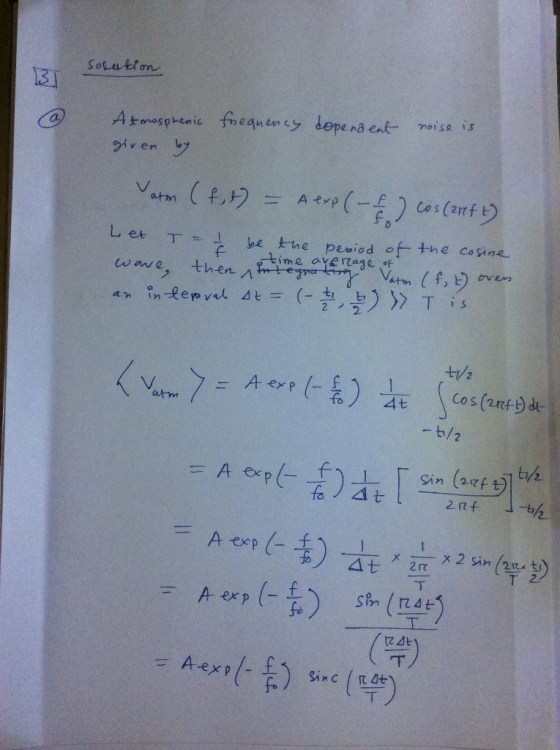 3 Solution
(a)
Atmospheric frequency dependent noise is
given by
V_atm (f,t) = A exp(-f/f₀) cos(2πft)
Let T = 1/f be the period of the cosine
wave, then time average of V_atm (f,t) over
an interval Δt = (-t₁/2, t₁/2) >> T is
⟨V_atm⟩ = A exp(-f/f₀) 1/Δt ∫_{-t₁/2}^{t₁/2} cos(2πft)dt
= A exp(-f/f₀) 1/Δt [sin(2πft)/2πf]_{-t₁/2}^{t₁/2}
= A exp(-f/f₀) 1/Δt × 1/(2π/T) × 2 sin(2π/T · t₁/2)
= A exp(-f/f₀) sin(πΔt/T)/(πΔt/T)
= A exp(-f/f₀) sinc(πΔt/T)